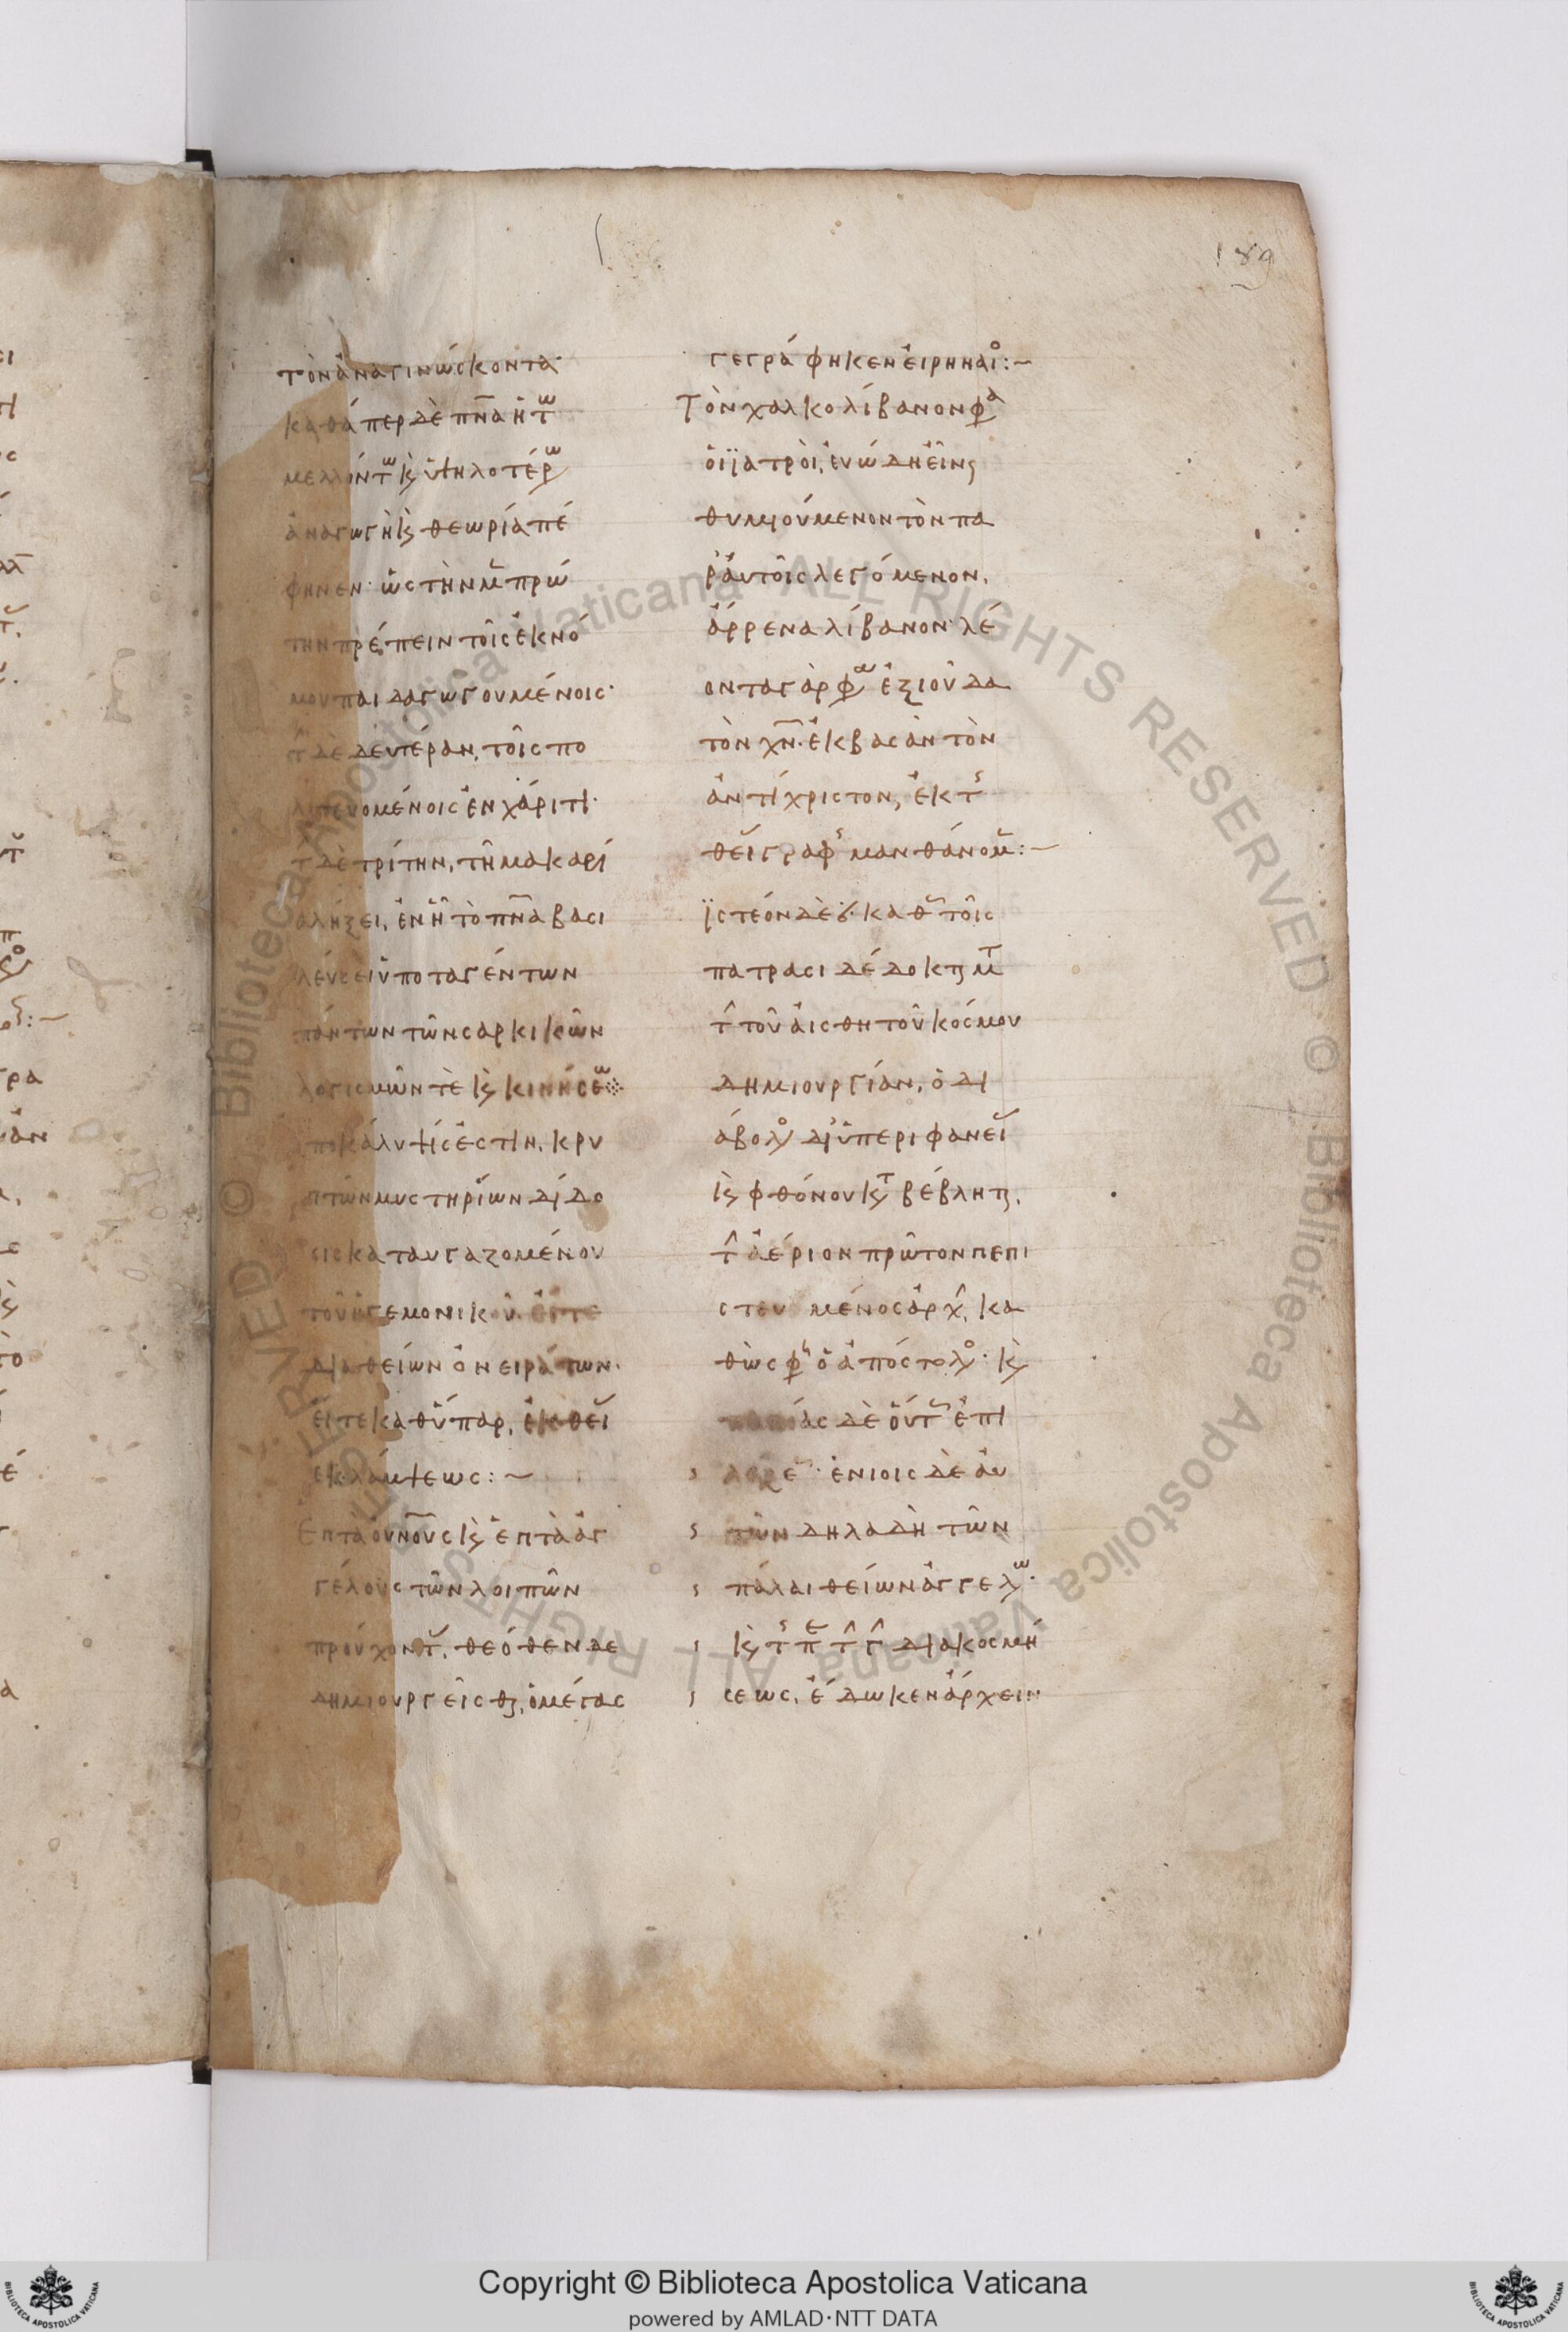 189
τὸν ἀναγινώσκοντα·
καθάπερ δὲ πν̅α ἡ τ͂ω
μελλόντω κ̀ς ὑψηλοτέρω
ἀναγωγὴ κ̀ς θεωρία πέ
φηνεν· ὡς τὴν μ̅ πρώ
την πρέπειν τοῖς ἐκ νό
μου παιδαγωγουμένοις·
τ̂ δὲ δευτέραν, τοῖς πο
λιτευομένοις ἐν χάριτι·
τ̂ δὲ τρίτην, τῆ μακαρί
α λήξει, ἐν ἧ τὸ πν̅α βασι
λεύσει ὑποταγέντων
πάντων τῶν σαρκικῶν
λογισμῶν τὲ κ̀ς κινήσεω
ποκάλυψίς ἐστιν, κρυ
πτῶν μυστηρίων δήλω
σις καταυγαζομένου
τοῦ ἡγεμονικοῦ. εἴτε
διὰ θείων ὀνειράτων·
εἴτε καθ ὕπαρ, ἐκ θεί
ἐκλάμψεως:~
Επτὰ οὐνο̅υς κ̀ς ἑπτὰ ἀγ
γέλους τῶν λοιπῶν
προύχοντ̆, θεόθεν δε
δημιουργεῖσθαι, ὁ μέγας
γεγράφηκεν εἰρηναῖο:~
Τὸν χαλκολίβανον φα
οἱ ϊατρὸι, ἐνώδη εἶναι
θυμιούμενον τὸν πα
ρ' ἀυτοῖς λεγόμενον,
ἄρρενα λίβανον· λέ
οντα γὰρ φω ἐξ ιούδα
τὸν χν̅· ἐκβασὰν τὸν
ἀντίχριστον, ἐκ τς
θεί γραφς μανθάνομ̆:~
ϊστέον δὲ· καθ τοῖς
πατρασι δέδοκται μτ
τ̂ τοῦ ἀισθητοῦ κόσμου
δημιουργίαν, ὁ δι
άβολο δι' ὑπεριφανεί
κ̀ς φθόνου κτ βέβληται,
τ̂ ἀέριον πρῶτον πεπι
στευμένος ἀρχ̂, κα
θὼς φη ὁ ἀπόστολο· κ̀ς
παπίας δὲ ὅυτ ἐπι
λέξε· ἐνίοις δὲ ἀυ
τῶν δηλαδὴ τῶν
πάλαι θείων ἀγγελω·
κ̀ς τς πε τ̂ γ̂ διακοσμή
σεως, ἔδωκεν ἄρχειν
Copyright © Biblioteca Apostolica Vaticana
powered by AMLAD·NTT DATA